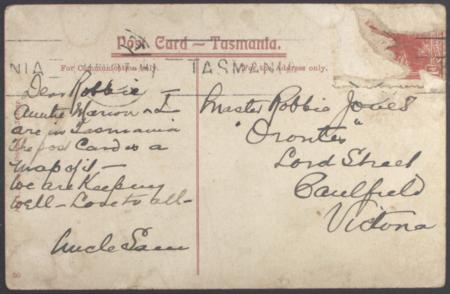 Post Card – Tasmania.
NIA
TASMANIA
For Communication only.
For the Address only.
Dear Robbie
Auntie Marion & I
are in Tasmania
The post Card is a
map of it –
We are Keeping
well – Love to all –
Uncle Sam
Master Robbie Jones
"Orontes"
Lord Street
Caulfield
Victoria
50